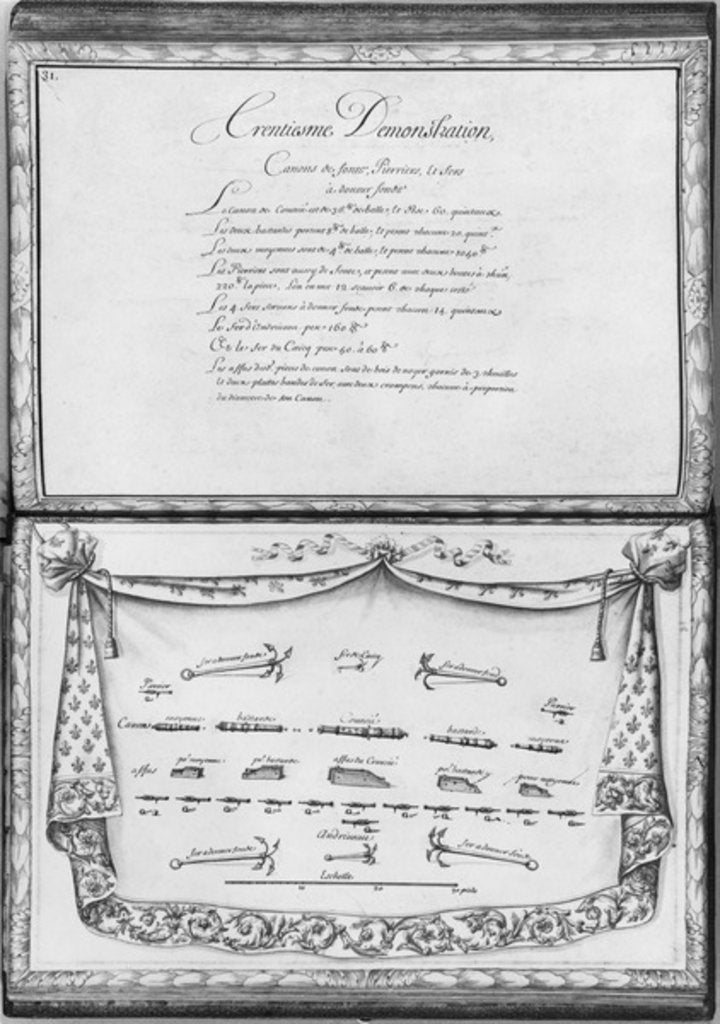 31.
Trentiesme Demonstration,
Canons de fonte, Pierriers, et Fers
a donner fonde
Le Canon de Coursié est de 36 lb de balle, et Pese 60. quintaux
Les deux bastardes portent 8 lb de balle, et pesent chacune 20. quint.x
Les deux moyennes sont de 4 lb de balle, et pesent chacune 1040 lb
Les Pierriers sont aussy de fonte, et pesent avec deux boettes a chacun,
220 lb la piece, L'on en met 12 scavoir 6. de chaque costé
Les 4 fers servans a donner fonde pesent chacun 14. quintaux
Le Fer d'Andriveau pese 160 lb
Et le fer du Caicq pese 40. a 60 lb
Les affus desd. pieces de canon sont de bois de noyer garnis de 3. chevilles
et deux plattes bandes de fer, avec deux crampons, chacune a proportion
du diametre de son Canon.
fer a donner fonde fer de Caicq fer a donner fond
Pierrier Pierrier
Canons moyenne bastarde Coursié bastarde moyenne
affus p.r moyenne p.r bastarde affus du Coursié p.r bastarde pour moyenne
Andriveau
fer a donner fonde fer a donner fond
Eschelle
10 20 30 pieds